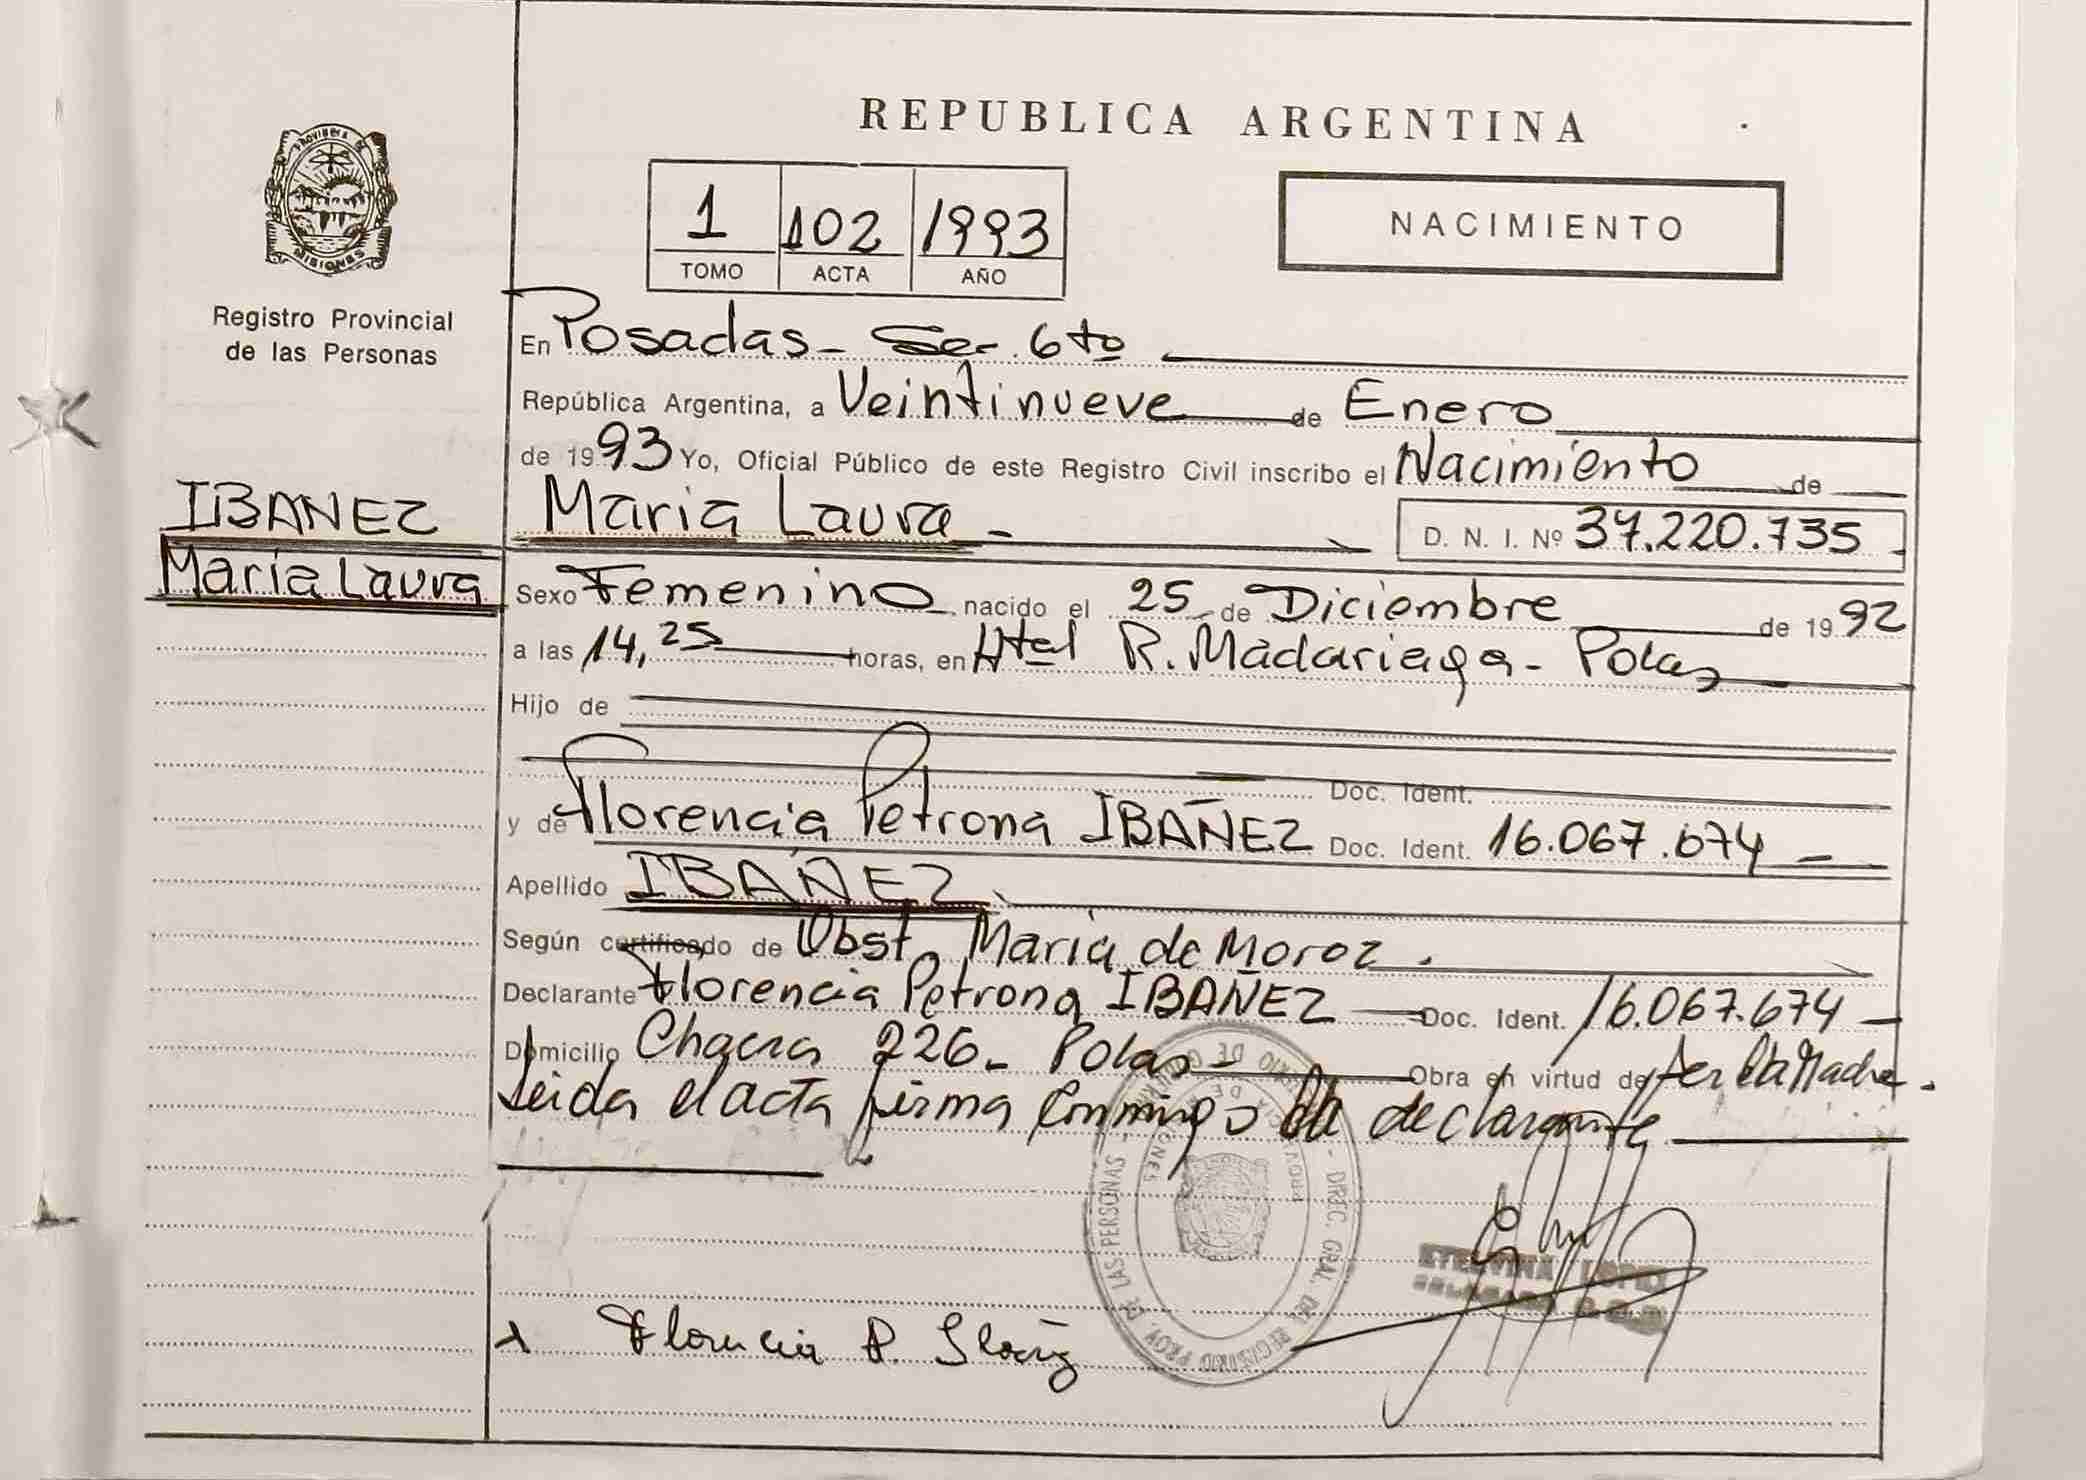 PROVINCIA DE
MISIONES
Registro Provincial
de las Personas
REPUBLICA ARGENTINA
1 102 1993
TOMO ACTA AÑO
NACIMIENTO
En Posadas - Sec. 6to
República Argentina, a Veintinueve de Enero
de 1993 Yo, Oficial Público de este Registro Civil inscribo el Nacimiento de
IBAÑEZ
Maria Laura
Maria Laura - D. N. I. Nº 37.220.735 -
Sexo Femenino nacido el 25 de Diciembre de 1992
a las 14,25 horas, en Htal R. Madariaga - Pdas
Hijo de
Doc. Ident.
y de Florencia Petrona IBAÑEZ Doc. Ident. 16.067.674 -
Apellido IBAÑEZ
Según certificado de Obst. Maria de Moroz.
Declarante Florencia Petrona IBAÑEZ Doc. Ident. 16.067.674 -
Domicilio Chacra 226 - Pdas - Obra en virtud de Ser la Madre.
Leida el acta firma conmigo la declarante
DIREC. GRAL. DEL REGISTRO PROV. DE LAS PERSONAS -
PROVINCIA DE MISIONES
ETELVINA LOPEZ
Florencia P. Ibañez